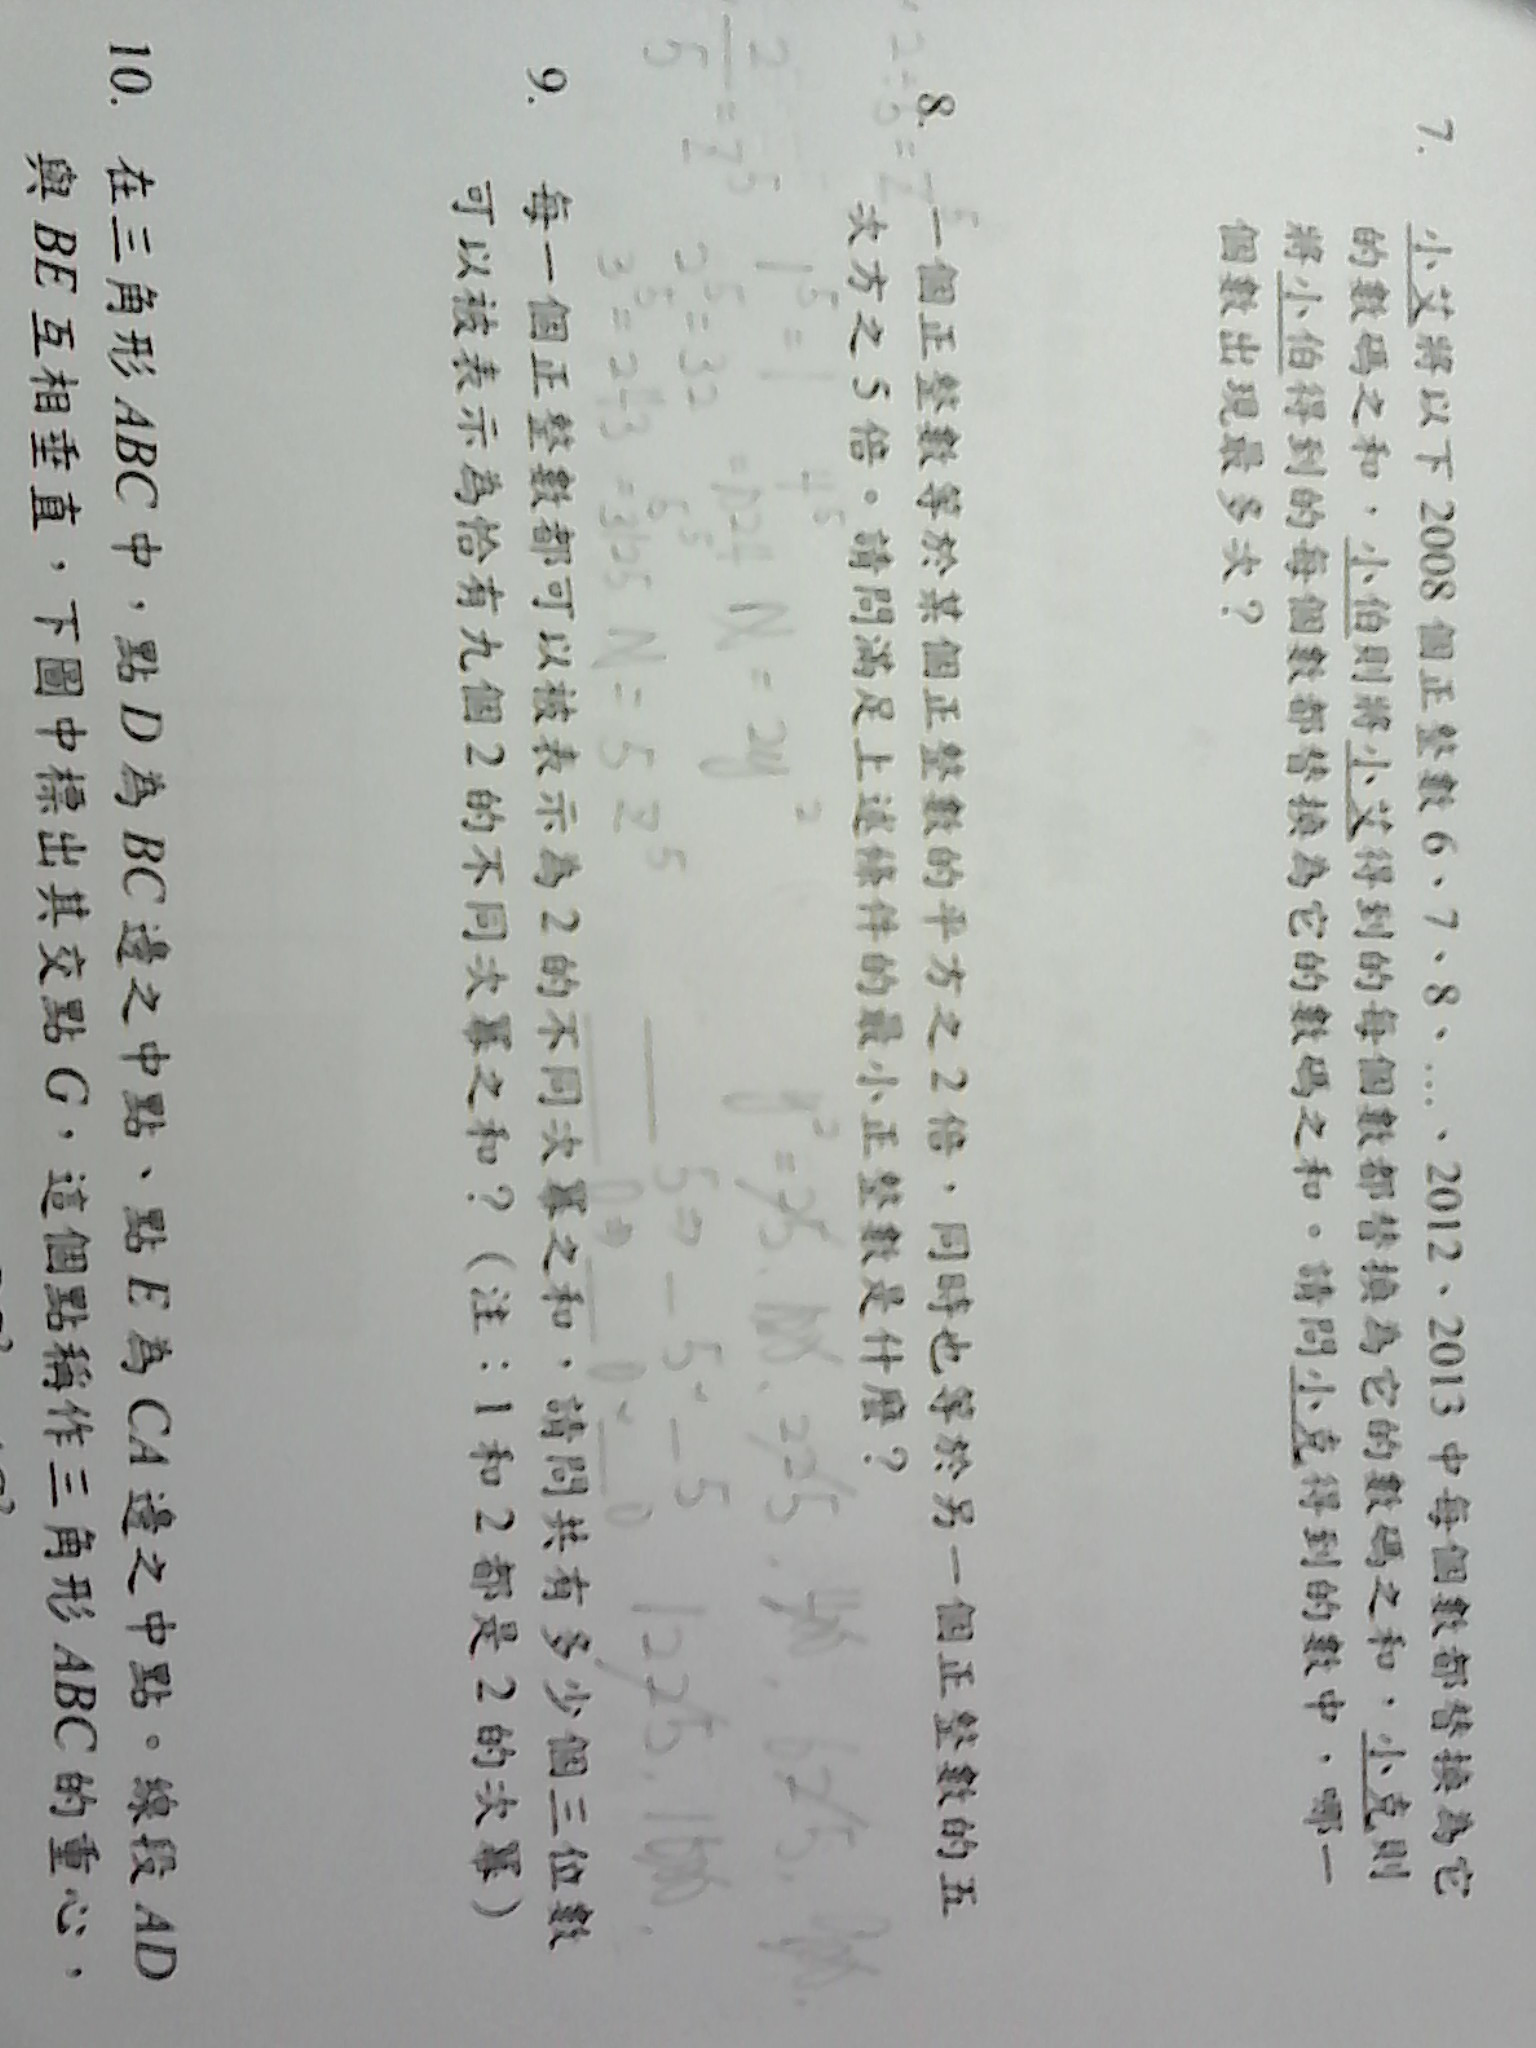 7. 小艾將以下 2008 個正整數 6、7、8、…、2012、2013 中每個數都替換為它
的數碼之和,小伯則將小艾得到的每個數都替換為它的數碼之和,小克則
將小伯得到的每個數都替換為它的數碼之和。請問小克得到的數中,哪一
個數出現最多次?
8. 一個正整數等於某個正整數的平方之 2 倍,同時也等於另一個正整數的五
次方之 5 倍。請問滿足上述條件的最小正整數是什麼?
1⁵=1 4⁵ N=2y²
2⁵=32 =1024
3⁵=243 N=5z⁵
9. 每一個正整數都可以被表示為 2 的不同次冪之和,請問共有多少個三位數
可以被表示為恰有九個 2 的不同次冪之和?(注:1 和 2 都是 2 的次冪)
10. 在三角形 ABC 中,點 D 為 BC 邊之中點、點 E 為 CA 邊之中點。線段 AD
與 BE 互相垂直,下圖中標出其交點 G,這個點稱作三角形 ABC 的重心,